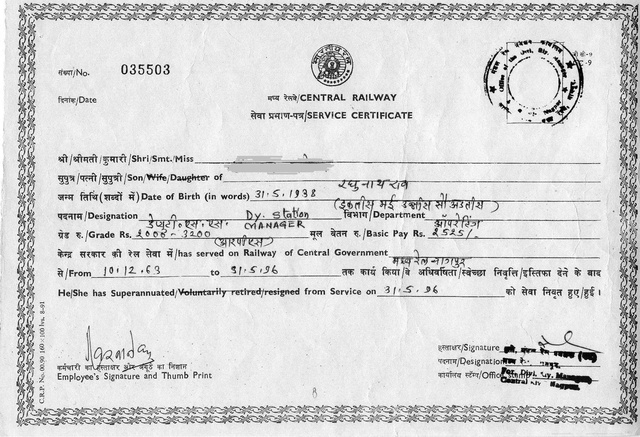 संख्या/No. 035503
दिनांक/Date
मध्य रेलवे/CENTRAL RAILWAY
सेवा प्रमाण-पत्र/SERVICE CERTIFICATE
श्री/श्रीमती/कुमारी/Shri/Smt./Miss
सुपुत्र/पत्नी/सुपुत्री/Son/Wife/Daughter of रघुनाथराव
जन्म तिथि (शब्दों में) Date of Birth (in words) 31.5.1938 (इकतीस मई उन्नीस सौ अड़तीस)
पदनाम/Designation डेप्युटी.एस.एस. Dy. Station MANAGER विभाग/Department ऑपरेटिंग
ग्रेड रु./Grade Rs. 2000-3200 (आरपीएस) मूल वेतन रु./Basic Pay Rs. 2525/-
केन्द्र सरकार की रेल सेवा में/has served on Railway of Central Government मध्य रेल नागपुर
से/From 10.12.63 to 31.5.96 तक कार्य किया/वे अधिवर्षिता/स्वेच्छा निवृत्ति/इस्तिफा देने के बाद
He/She has Superannuated/Voluntarily retired/resigned from Service on 31.5.96 को सेवा निवृत्त हुए/हुई।
हस्ताक्षर/Signature
पदनाम/Designation
For Divl. Manager
कार्यालय स्टॅंप/Office Stamp
Central Nagpur
कर्मचारी का हस्ताक्षर और अंगूठे का निशान
Employee's Signature and Thumb Print
8